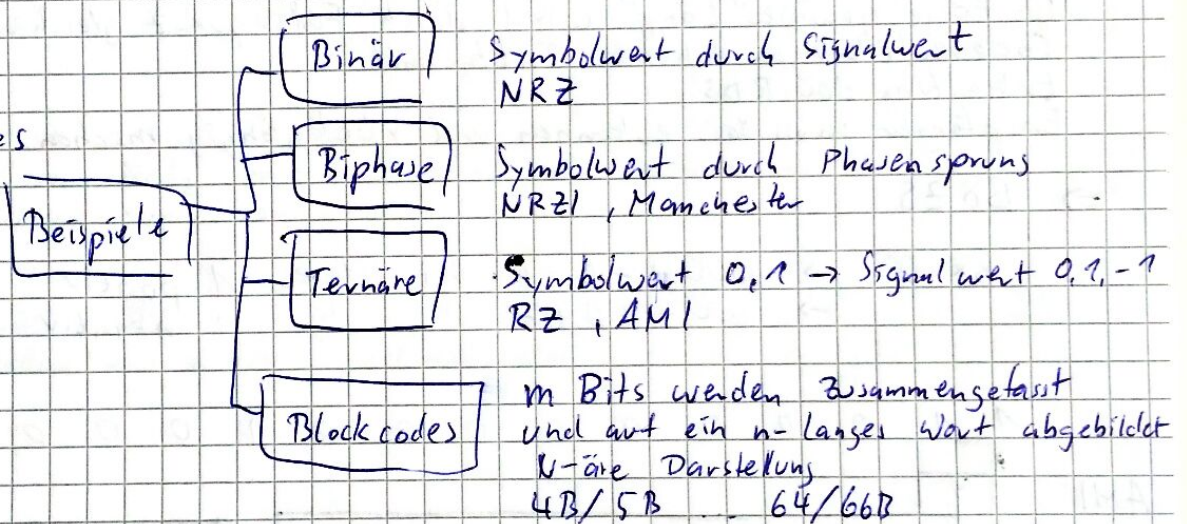 Binär
Symbolwert durch Signalwert
NRZ
es
Biphase
Symbolwert durch Phasensprung
NRZI, Manchester
Beispiele
Ternäre
Symbolwert 0,1 → Signalwert 0,1,-1
RZ, AMI
Blockcodes
m Bits werden zusammengefasst
und auf ein n-langes Wort abgebildet
N-äre Darstellung
4B/5B 64/66B